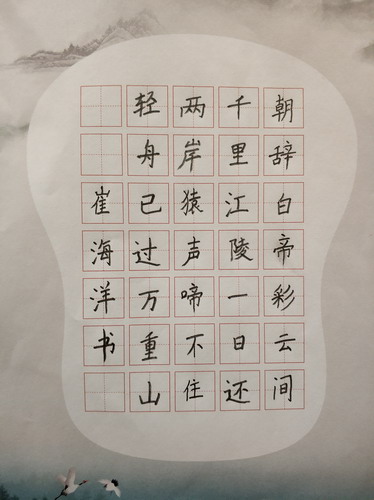 朝辞白帝彩云间
千里江陵一日还
两岸猿声啼不住
轻舟已过万重山
崔海洋书